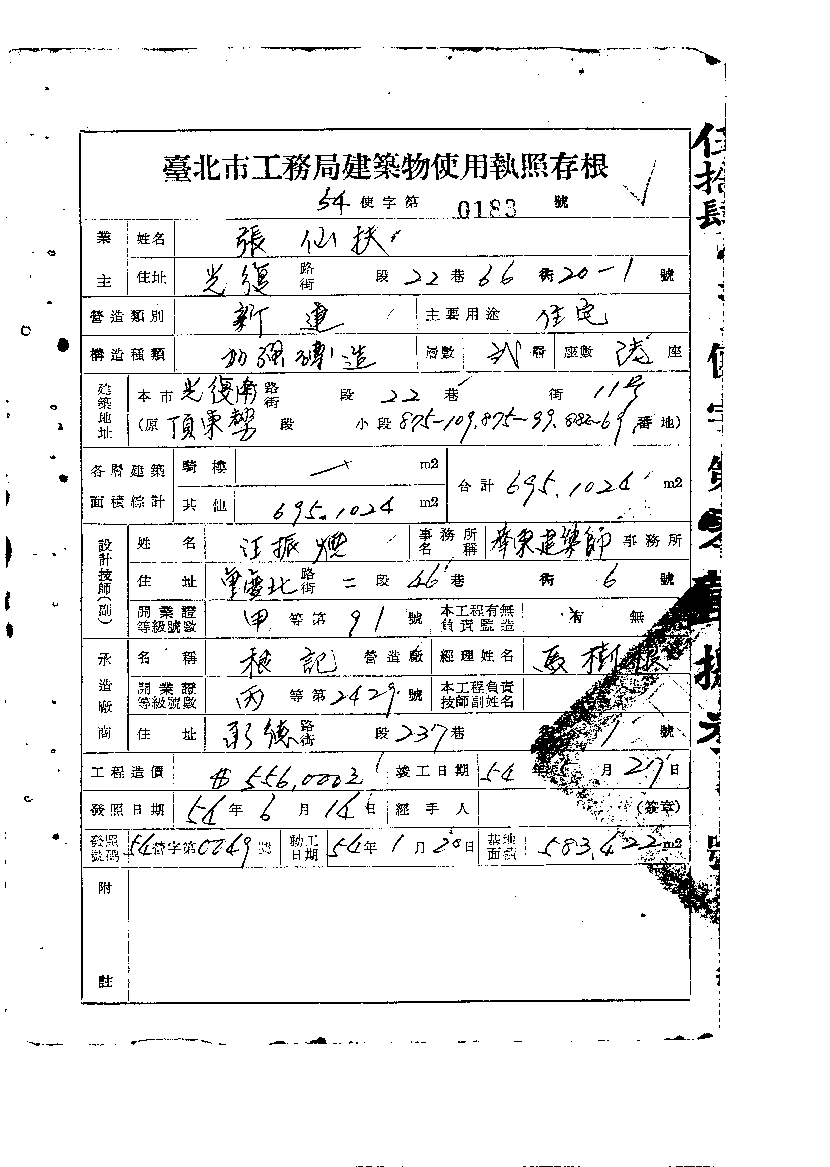 臺北市工務局建築物使用執照存根
54 使字第 0183 號
業主 姓名 張仙扶
住址 光復 路街 段 22 巷 66 街 20-1 號
營造類別 新建 主要用途 住宅
構造種類 加強磚造 層數 弍 層 座數 座
建築地址 本市 光復南 路街 段 22 巷 街 11号
(原 頂東 段 小段 875-109.875-99.882-69 番地)
各層建築面積綜計 騎樓 m2 合計 695.1024 m2
其他 695.1024 m2
設計技師(副) 姓名 汪振 事務所名稱 華東建築師 事務所
住址 重慶北 路街 二 段 46 巷 街 6 號
開業證等級號數 甲 等第 91 號 本工程有無負責監造 有 無
承造廠商 名稱 根記 營造廠 經理姓名 樹根
開業證等級號數 丙 等第 2429 號 本工程負責技師副姓名
住址 彰德 路街 段 237 巷 1 號
工程造價 556,000 竣工日期 54 年 月 27 日
發照日期 54 年 6 月 14 日 經手人 (簽章)
發照號碼 54 營字第 0249 號 動工日期 54 年 1 月 20 日 基地面積 583.422 m2
附註
伍拾肆 使字第零 號